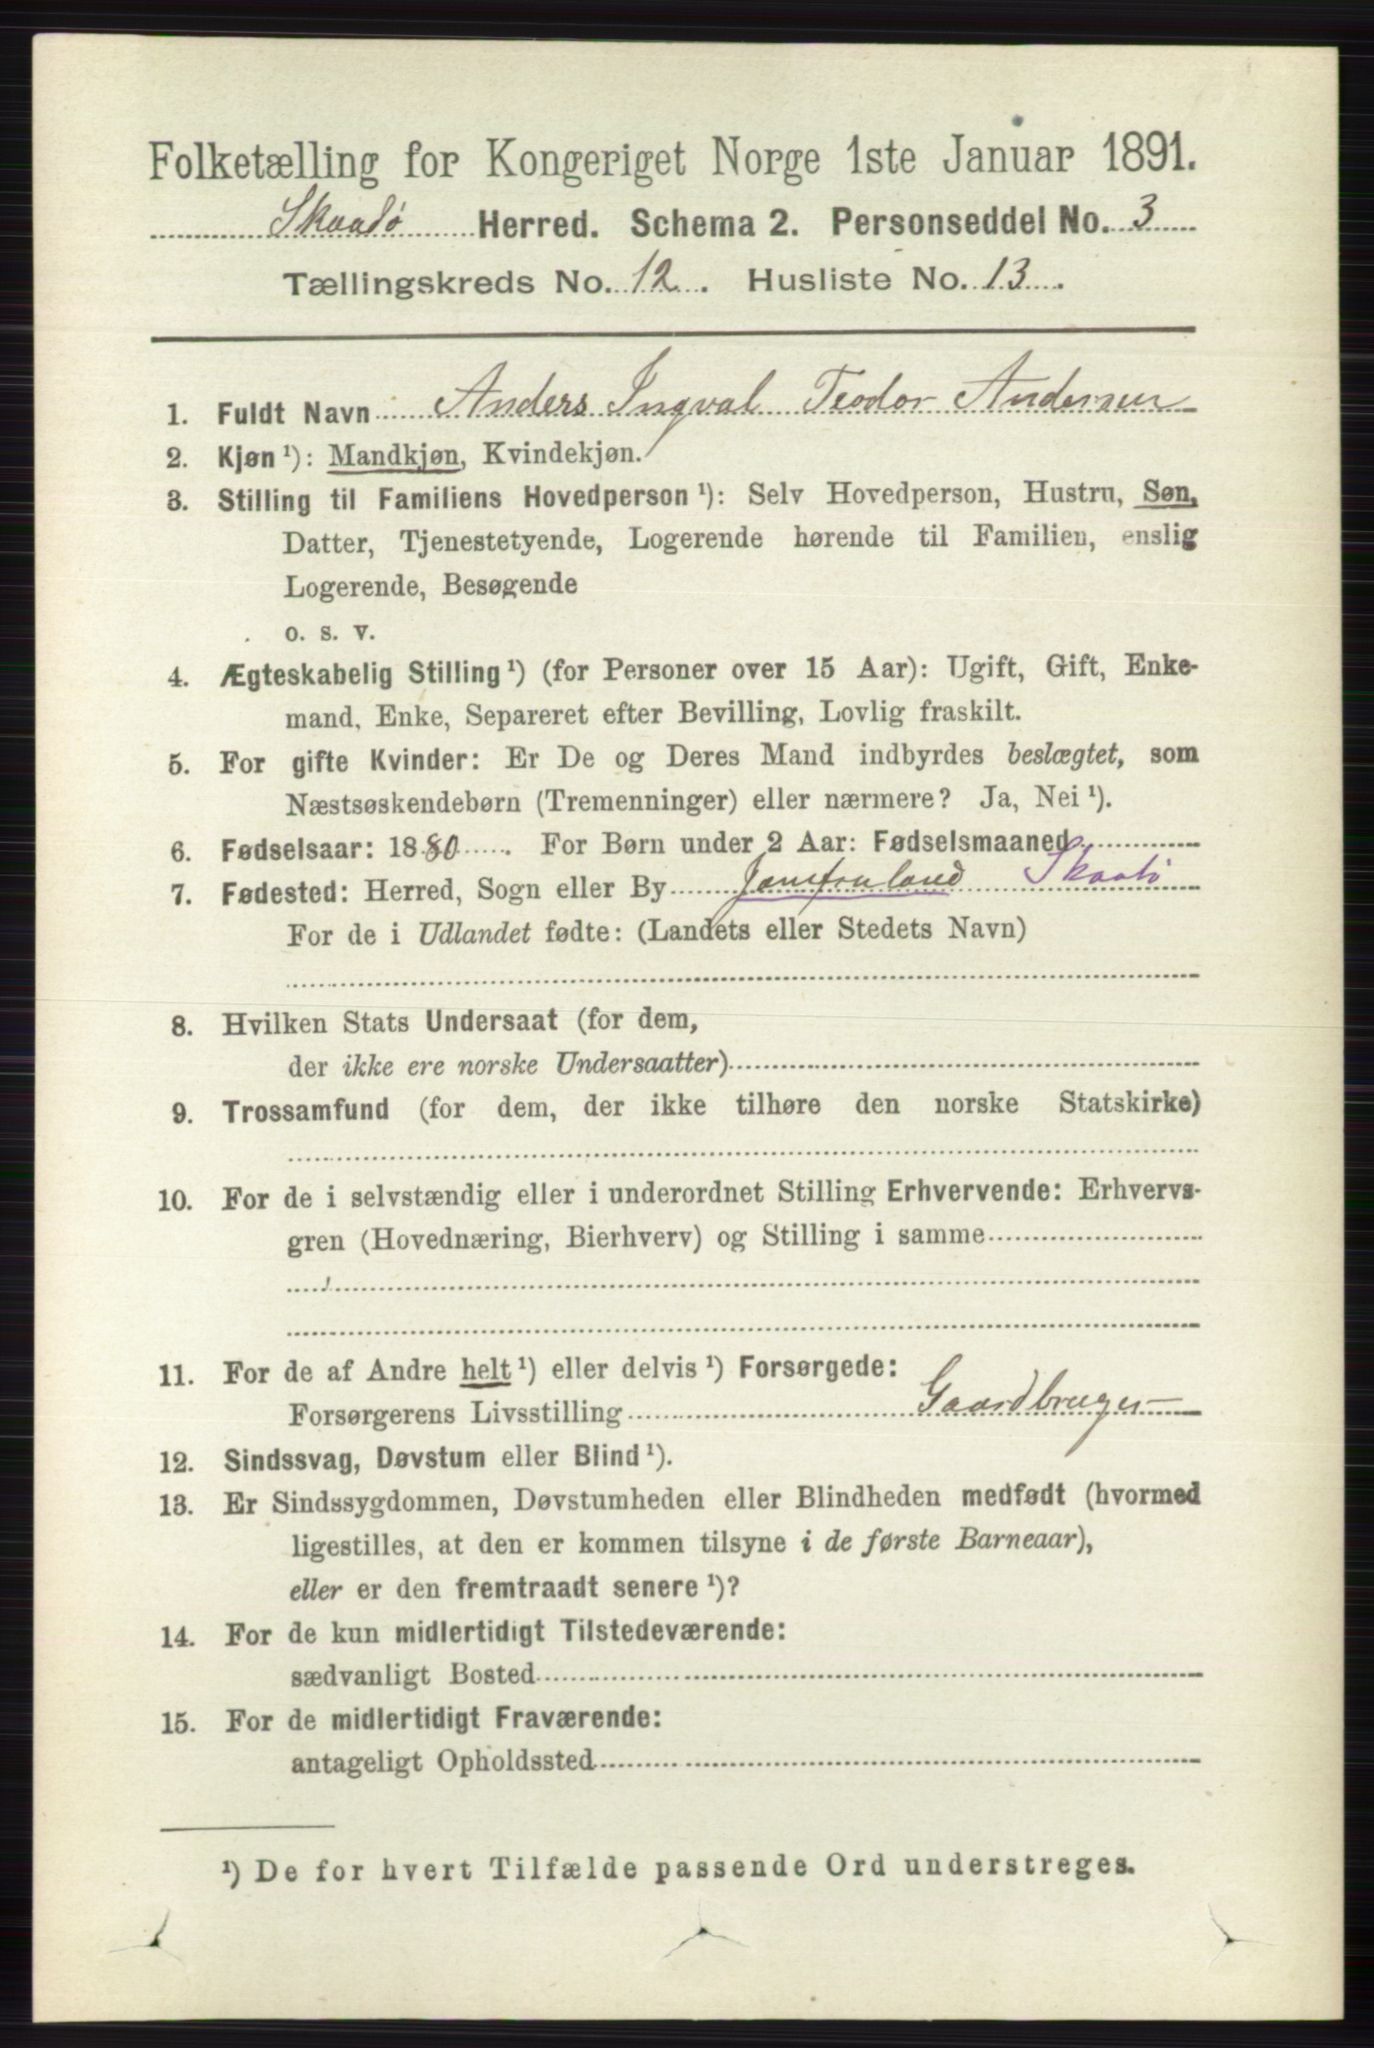 Folketælling for Kongeriget Norge 1ste Januar 1891.
Skaadø Herred. Schema 2. Personseddel No. 3
Tællingskreds No. 12. Husliste No. 13.
1. Fuldt Navn Anders Ingval Teodor Andersen
2. Kjøn ¹): Mandkjøn, Kvindekjøn.
3. Stilling til Familiens Hovedperson ¹): Selv Hovedperson, Hustru, Søn,
Datter, Tjenestetyende, Logerende hørende til Familien, enslig
Logerende, Besøgende
o. s. v.
4. Ægteskabelig Stilling ¹) (for Personer over 15 Aar): Ugift, Gift, Enke-
mand, Enke, Separeret efter Bevilling, Lovlig fraskilt.
5. For gifte Kvinder: Er De og Deres Mand indbyrdes beslægtet, som
Næstsøskendebørn (Tremenninger) eller nærmere? Ja, Nei ¹).
6. Fødselsaar: 1880. For Børn under 2 Aar: Fødselsmaaned
7. Fødested: Herred, Sogn eller By Jomfruland Skaatø
For de i Udlandet fødte: (Landets eller Stedets Navn)
8. Hvilken Stats Undersaat (for dem,
der ikke ere norske Undersaatter)
9. Trossamfund (for dem, der ikke tilhøre den norske Statskirke)
10. For de i selvstændig eller i underordnet Stilling Erhvervende: Erhvervs-
gren (Hovednæring, Bierhverv) og Stilling i samme
11. For de af Andre helt ¹) eller delvis ¹) Forsørgede:
Forsørgerens Livsstilling Gaardbruger
12. Sindssvag, Døvstum eller Blind ¹).
13. Er Sindssygdommen, Døvstumheden eller Blindheden medfødt (hvormed
ligestilles, at den er kommen tilsyne i de første Barneaar),
eller er den fremtraadt senere ¹)?
14. For de kun midlertidigt Tilstedeværende:
sædvanligt Bosted
15. For de midlertidigt Fraværende:
antageligt Opholdssted
¹) De for hvert Tilfælde passende Ord understreges.